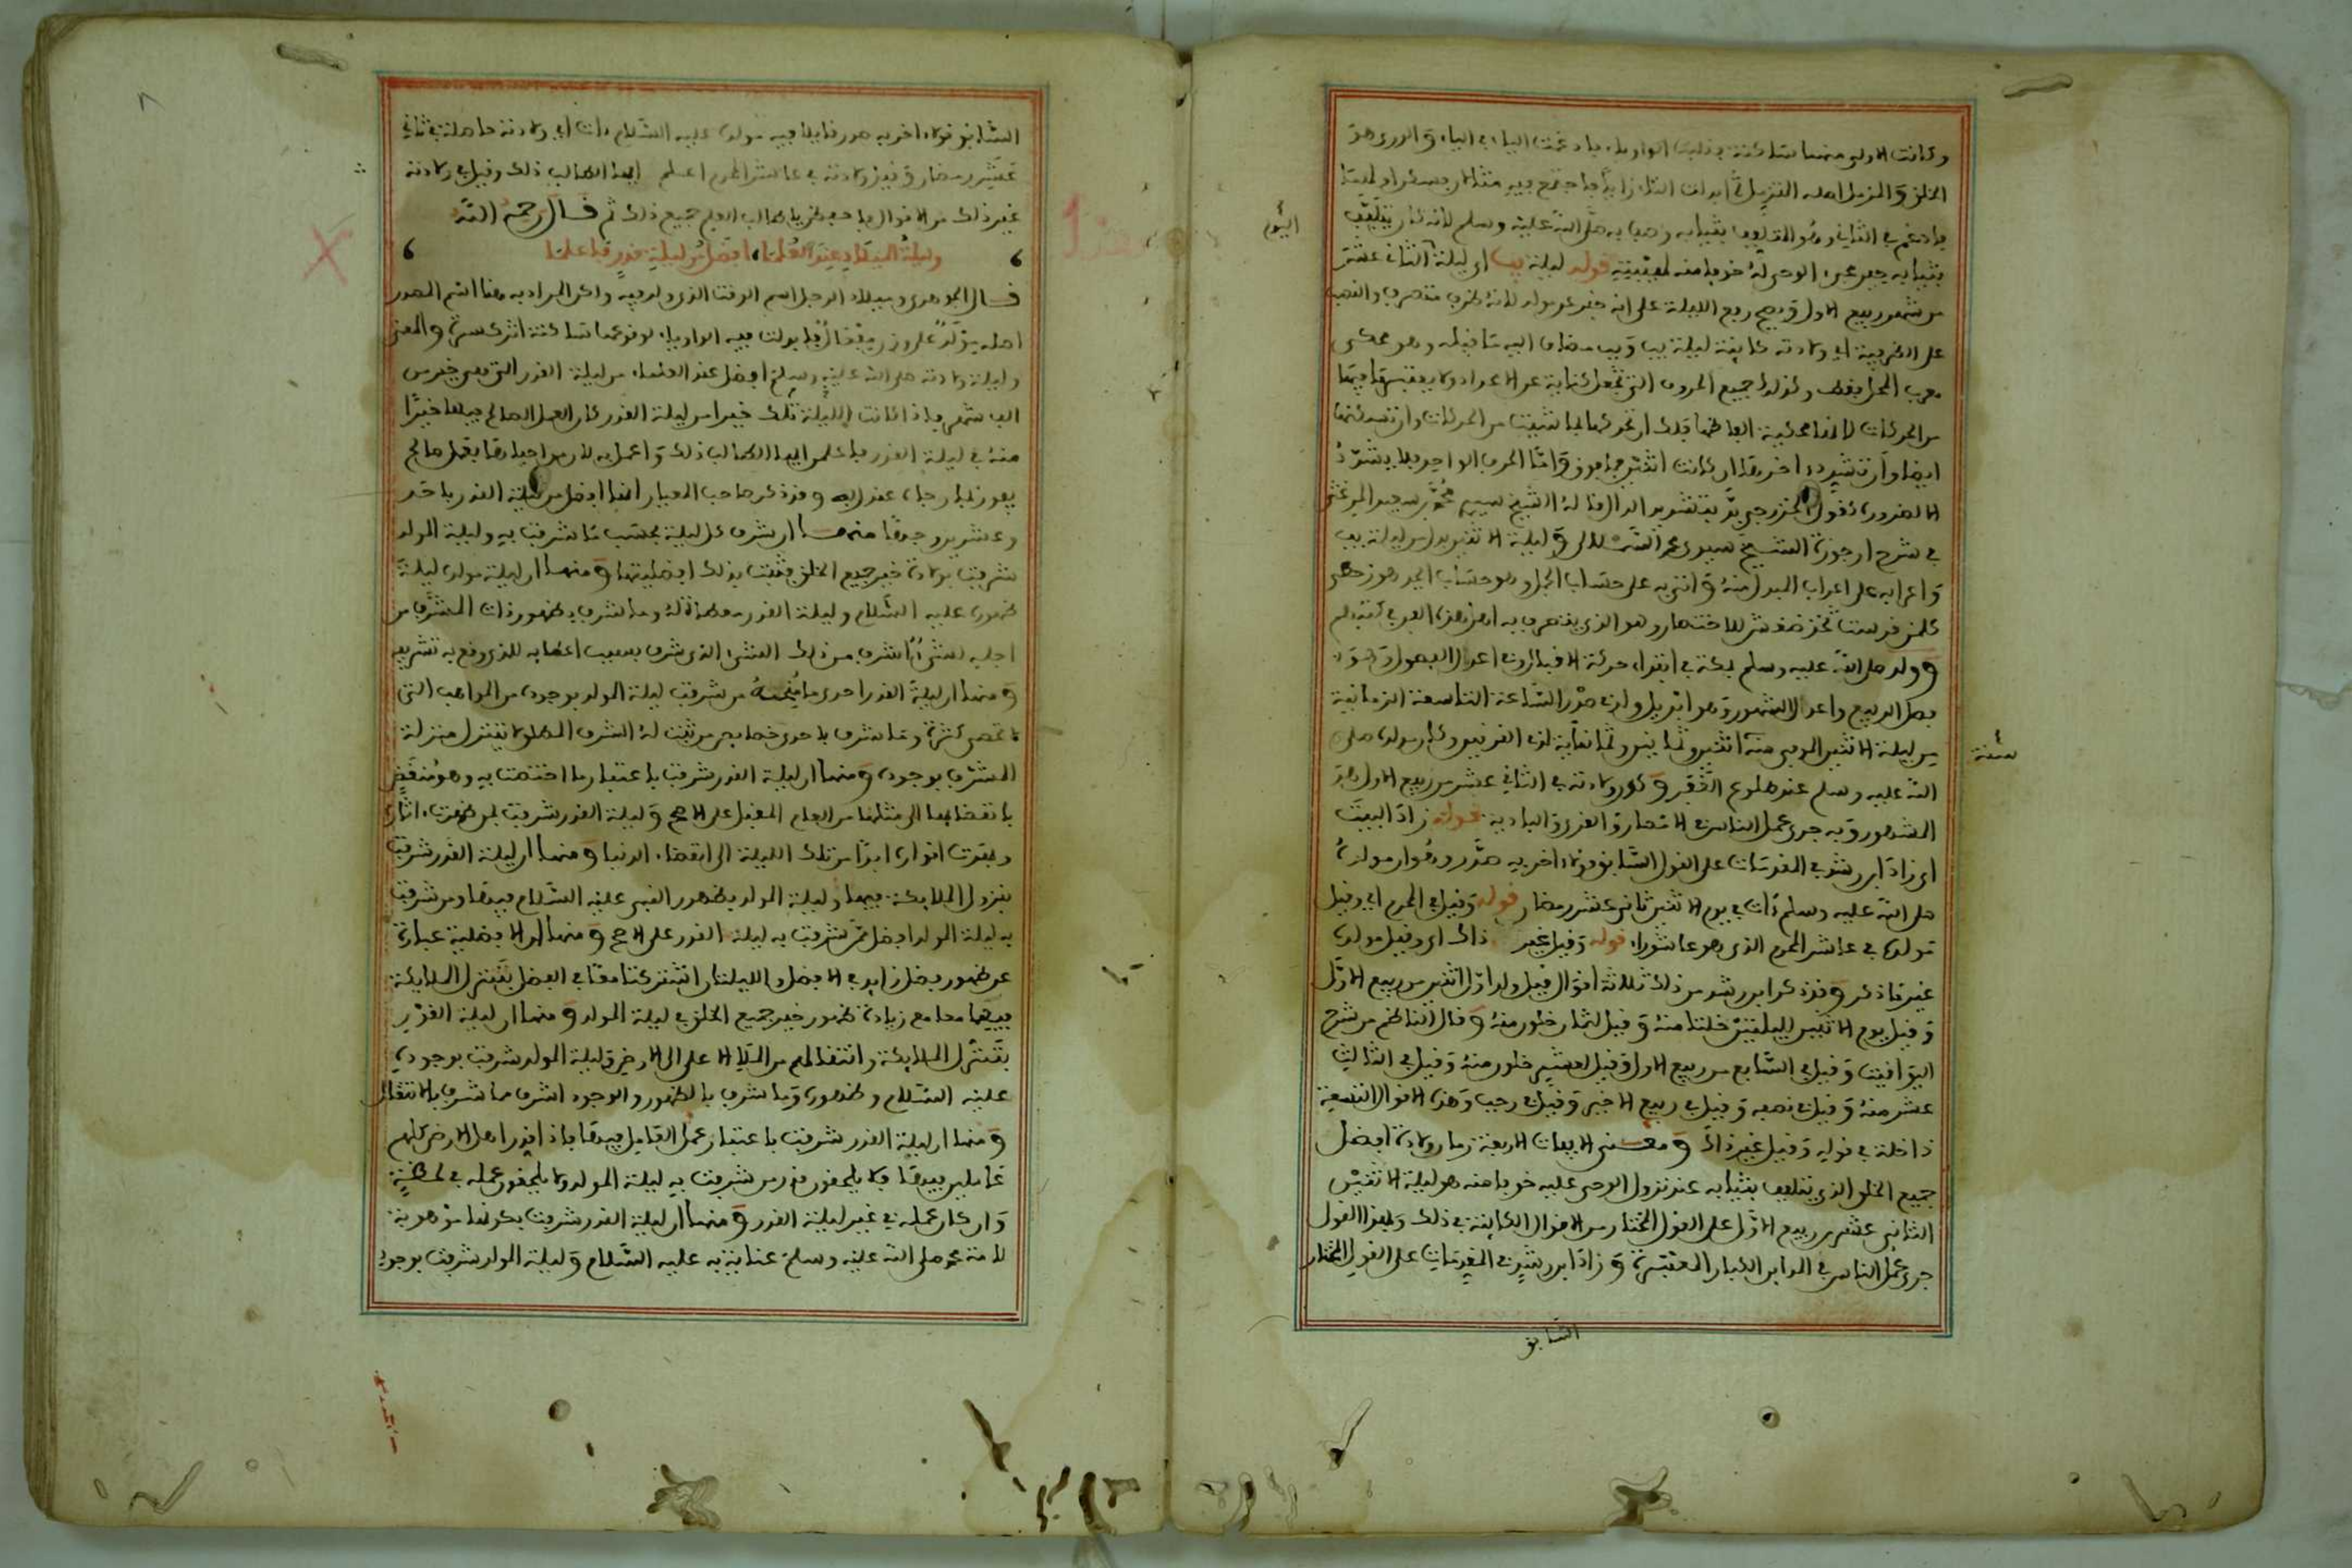 وكانت الاولى منهما ساكنة فقلبت الواو ياء فادغمت الياء في الياء والورى هو
الخلق والمزمل اصله المتزمل ثم ابدلت التاء زايا فاجتمع فيه مثلان فسكن اولهما
فادغم في الثاني وهو المتلفف بثيابه وصف به صلى الله عليه وسلم لانه كان يتلفف
اليوم
بثيابه حين مجيء الوحي له خوفا منه لهيبته قوله ليلة يب اي ليلة الثاني عشر
من شهر ربيع الاول ويصح رفع الليلة على انه خبر عن مولد لانه ظرف متصرف والنصب
على الظرفية اي ولادته كاينة ليلة يب ويب مضاف اليه ما قبله وهو محكي
معرب المحل فقط وكذلك جميع الحروف التي تجعل كناية عن الاعداد
من الحركات لانها محكية الفاظها فلك ان تحركها بما شيت من الحركات وان تسكنها
ايضا وان تشدد اخرها ان كانت اثنين فما فوق واما الحرف الواحد فلا يشدد
الا لضرورة كقول الخزرجي بتشديد الدال قاله الشيخ سيدي محمد بن سعيد المرغثي
في شرح ارجوزة الشيخ سيدي وليلة الاثنين بدل من ليلة يب
واعرابه على اعراب المبدل منه واتى به على حساب الجمل وهو حساب ابجد هوز حطي
كلمن قرست ثخذ ظغش للاختصار وهو الذي يتصرف به اهل هذا الفن في كتبهم
وولد صلى الله عليه وسلم بمكة في ابتداء حركة الاقبال وفي اعدل الفصول وهو
فصل الربيع واعدل الشهور وهو ابريل وفي صدر الساعة التاسعة الزمانية
من ليلة الاثنين الموفي سنة اثنين وثمانين وثمانماية لذي القرنين وكان مولده صلى
سنة
الله عليه وسلم عند طلوع الفجر وكون ولادته في الثاني عشر من ربيع الاول هو
المشهور وبه جرى عمل الناس في الامصار والقرى والبادية قوله زاد البيت
اي زاد ابن رشد في المقدمات على القول السابق قولا اخر به صدر وهو ان مولده
صلى الله عليه وسلم ذات في يوم الاثنين ثاني عشر رمضان قوله وقيل في المحرم اي وقيل
مولده في عاشر المحرم الذي هو عاشوراء قوله وقيل غير ذاك اي وقيل مولده
غير ما ذكر وقد ذكر ابن رشد من ذلك ثلاثة اقوال قيل ولد اول اثنين من ربيع الاول
وقيل يوم الاثنين لليلتين خلتا منه وقيل لثمان خلون منه وقال الناظم من شرح
اليواقيت وقيل في السابع من ربيع الاول وقيل لعشر خلون منه وقيل في الثالث
عشر منه وقيل في نصفه وقيل في ربيع الاخير وقيل في رجب وهذه الاقوال التسعة
داخلة في قوله وقيل غير ذاك ومعنى الابيات الاربعة زمان ولادة افضل
جميع الخلق الذي يتلفف بثيابه عند نزول الوحي عليه خوفا منه هو ليلة الاثنين
الثاني عشر من ربيع الاول على القول المختار من الاقوال الكاينة في ذلك وبهذا القول
جرى عمل الناس في المداين الكبار المعتبرة وزاد ابن رشد في المقدمات على القول المختار
السابق
السابق قولا اخر به صدر قايلا فيه مولده عليه السلام ذات اي ولادته حاصلة في ثاني
عشر رمضان وقيل ولادته في عاشر المحرم اعلم ايها الطالب ذلك وقيل في ولادته
غير ذلك من الاقوال فاحفظن يا طالب العلم جميع ذلك ثم قال رحمه الله
وليلة الميلاد عند العلما افضل من ليلة قدر فاعلما
قال الجوهري وميلاد الرجل اسم الوقت الذي ولد فيه ولكن المراد به هنا اسم المصدر
اصله مولاد على وزن مفعال قلبت فيه الواو ياء لوقوعها ساكنة اثر كسرة والمعنى
وليلة ولادته صلى الله عليه وسلم افضل عند العلماء من ليلة القدر التي هي خير من
الف شهر فاذا كانت الليلة تلك خيرا من ليلة القدر كان العمل الصالح فيها خيرا
منه في ليلة القدر فاعلم ايها الطالب ذلك واعمل به لان من احياها بعمل صالح
يفوز بما رجاه عند الله وقد ذكر صاحب المعيار انها افضل من ليلة القدر باحد
وعشرين وجها منها ان شرف كل ليلة بحسب ما شرفت به وليلة المولد
شرفت بولادة خير جميع الخلق فثبتت بذلك افضليتها ومنها ان ليلة مولده ليلة
ظهوره عليه السلام وليلة القدر معطاة له وما شرف بظهور ذات المشرف من
اجله لشيء اشرف من ذلك الشيء الذي شرف بسبب اعطايه للذي وقع به تشريفه
ومنها ان ليلة القدر احدى ما منحه من شرفت ليلة المولد بوجوده من المواهب التي
لا تحصى كثرة وما شرف باحدى خصايص من ثبت له الشرف المطلق لا يتنزل منزلة
المشرف بوجوده ومنها ان ليلة القدر شرفت باعتبار ما اختصت به وهو منقض
بانقضايها الى مثلها من العام المقبل على الاصح وليلة القدر شرفت بمن ظهرت اثاره
وبهرت انواره ابدا من تلك الليلة الى انقضاء الدنيا ومنها ان ليلة القدر شرفت
بنزول الملايكة فيها وليلة المولد بظهور النبي عليه السلام فيها ومن شرفت
به ليلة المولد افضل ممن شرفت به ليلة القدر على الاصح ومنها ان الافضلية عبارة
عن ظهور فضل زايد في الافضل والليلتان اشتركتا معا في الفضل بتنزل الملايكة
فيهما معا مع زيادة ظهور خير جميع الخلق في ليلة المولد ومنها ان ليلة القدر
بتنزل الملايكة وانتقالهم من الملا الاعلى الى الارض وليلة المولد شرفت بوجوده
عليه السلام وظهوره وما شرف بالظهور والوجود اشرف مما شرف بالانتقال
ومنها ان ليلة القدر شرفت باعتبار عمل العامل فيها فاذا قدر اهل الارض كلهم
عاملين فيها فلا يلحقون قدر من شرفت به ليلة المولد ولا يلحقون عمله في لحظة
وان كان عمله في غير ليلة القدر ومنها ان ليلة القدر شرفت بكونها موهوبة
لامة محمد صلى الله عليه وسلم عناية به عليه السلام وليلة المولد شرفت بوجود